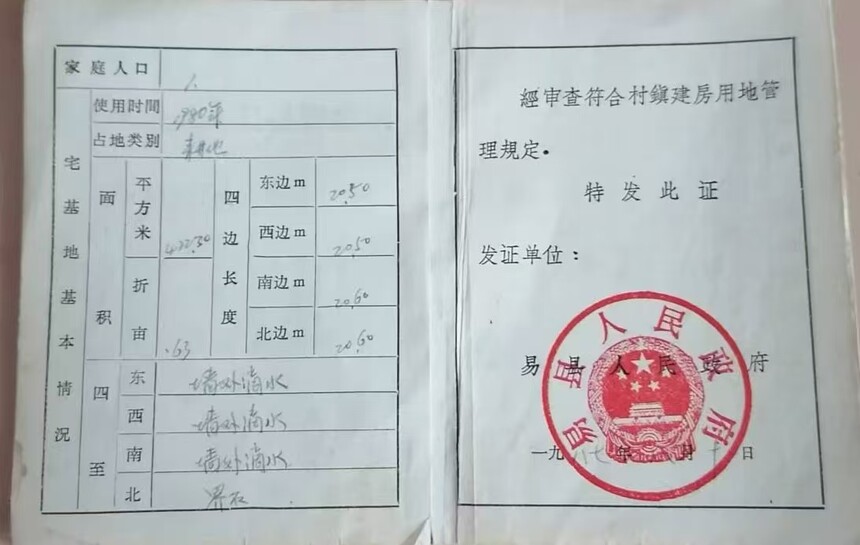 家庭人口
宅基地基本情况
使用时间 1980年
占地类别 耕地
面积
平方米 422.30
折亩 .63
四边长度
东边m 20.50
西边m 20.50
南边m 20.60
北边m 20.60
四至
东 墙外滴水
西 墙外滴水
南 墙外滴水
北 界石
經审查符合村鎮建房用地管
理规定.
特发此证
发证单位：
易县人民政府
易县人民政府
一九八七年 月十日